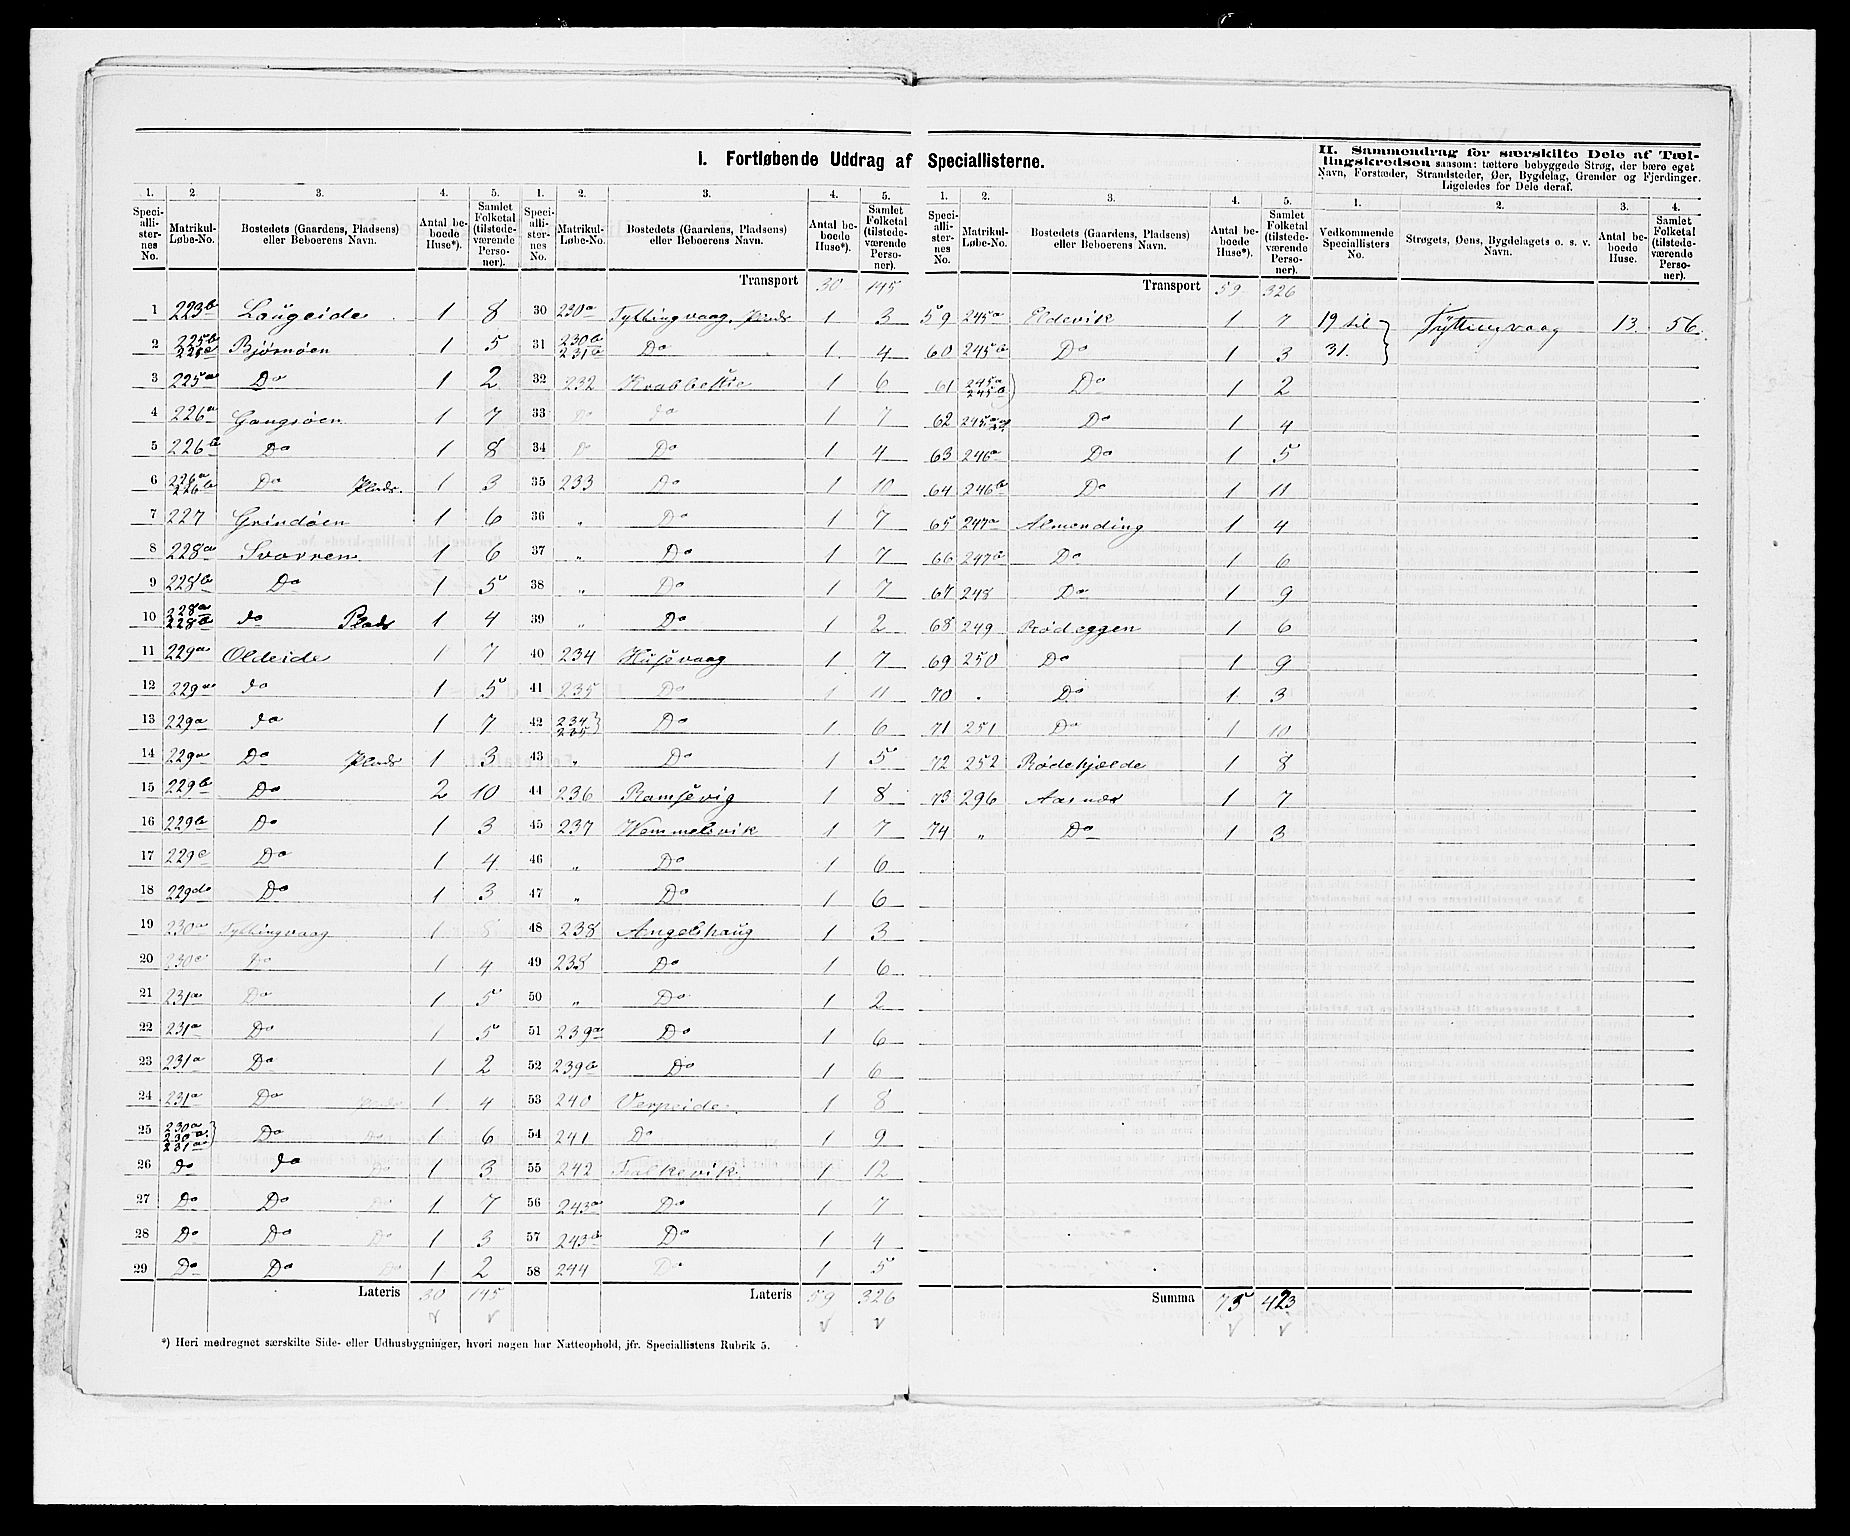 I. Fortløbende Uddrag af Speciallisterne.
II. Sammendrag for særskilte Dele af Tællingskredsen saasom: tættere bebyggede Strøg, der bære eget Navn, Forstæder, Strandsteder, Øer, Bygdelag, Grender og Fjerdinger. Ligeledes for Dele deraf.
1. 2. 3. 4. 5. 1. 2. 3. 4. 5. 1. 2. 3. 4. 5. 1. 2. 3. 4.
Speciallisternes No. Matrikul-Løbe-No. Bostedets (Gaardens, Pladsens) eller Beboerens Navn. Antal beboede Huse*). Samlet Folketal (tilstedeværende Personer).
Speciallisternes No. Matrikul-Løbe-No. Bostedets (Gaardens, Pladsens) eller Beboerens Navn. Antal beboede Huse*). Samlet Folketal (tilstedeværende Personer).
Speciallisternes No. Matrikul-Løbe-No. Bostedets (Gaardens, Pladsens) eller Beboerens Navn. Antal beboede Huse*). Samlet Folketal (tilstedeværende Personer).
Vedkommende Speciallisters No. Strøgets, Øens, Bygdelagets o. s. v. Navn. Antal beboede Huse. Samlet Folketal (tilstedeværende Personer).
1 223b Laugeide 1 8
2 225b 225c Bjørnøen 1 5
3 225a Do 1 2
4 226a Gangsøen 1 7
5 226b Do 1 8
6 226a 226b Do Plads 1 3
7 227 Grindøen 1 6
8 228a Svarren 1 6
9 228b Do 1 5
10 228a 228b do Plads 1 4
11 229a Oldeide 1 7
12 229a do 1 5
13 229a do 1 7
14 229a Do Plads 1 3
15 229b Do 2 10
16 229b Do 1 3
17 229c Do 1 4
18 229d Do 1 3
19 230a Tyttingvaag 1 8
20 230c Do 1 4
21 231a Do 1 5
22 231a Do 1 5
23 231a Do 1 2
24 231a Do Plads 1 4
25 230a 230a 231a } Do Do 1 6
26 Do do Do 1 3
27 Do Do Do 1 7
28 Do Do Do 1 3
29 Do Do Do 1 2
Lateris 30 145
Transport 30 145
30 230a Tyttingvaag, Plads 1 3
31 230b 231b Do 1 4
32 232 Krabbestie 1 6
33 Do do 1 7
34 D Do 1 4
35 233 Do 1 10
36 " Do 1 7
37 " Do 1 7
38 " Do 1 7
39 " Do 1 2
40 234 Husevaag 1 7
41 235 Do 1 11
42 234 235 } Do 1 6
43 " Do 1 5
44 236 Ramsevig 1 8
45 237 Hemmelsvik 1 7
46 " Do 1 6
47 " Do 1 6
48 238 Angelshaug 1 3
49 238 Do 1 6
50 " Do 1 2
51 239a Do 1 6
52 239b Do 1 6
53 240 Verpeide 1 8
54 241 Do 1 9
55 242 Falkevik 1 12
56 243a Do 1 7
57 243b Do 1 4
58 244 Do 1 5
Lateris 59 326
Transport 59 326
59 245a Eldevik 1 7
60 245b Do 1 3
61 245a 245b } Do 1 2
62 245a Do 1 4
63 246a Do 1 5
64 246b Do 1 11
65 247a Almending 1 4
66 247b Do 1 6
67 248 Do 1 9
68 249 Rødeggen 1 6
69 250 Do 1 9
70 " Do 1 3
71 251 Do 1 10
72 252 Rødehjelde 1 8
73 296 Aasnæs 1 7
74 " Do 1 3
Summa 75 423
19 til 31. } Tyttingvaag 13 56
*) Heri medregnet særskilte Side- eller Udhusbygninger, hvori nogen har Natteophold, jfr. Speciallistens Rubrik 5.